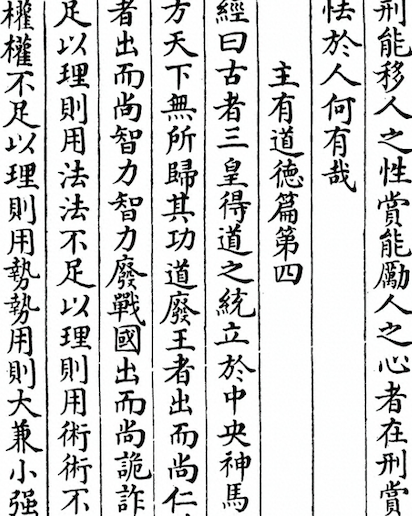 刑能移人之性賞能勵人之心者在刑賞
怯於人何有哉
主有道德篇第四
經曰古者三皇得道之統立於中央神馬
方天下無所歸其功道廢王者出而尚仁
者出而尚智力智力廢戰國出而尚詭詐
足以理則用法法不足以理則用術術不
權權不足以理則用勢勢用則大兼小强